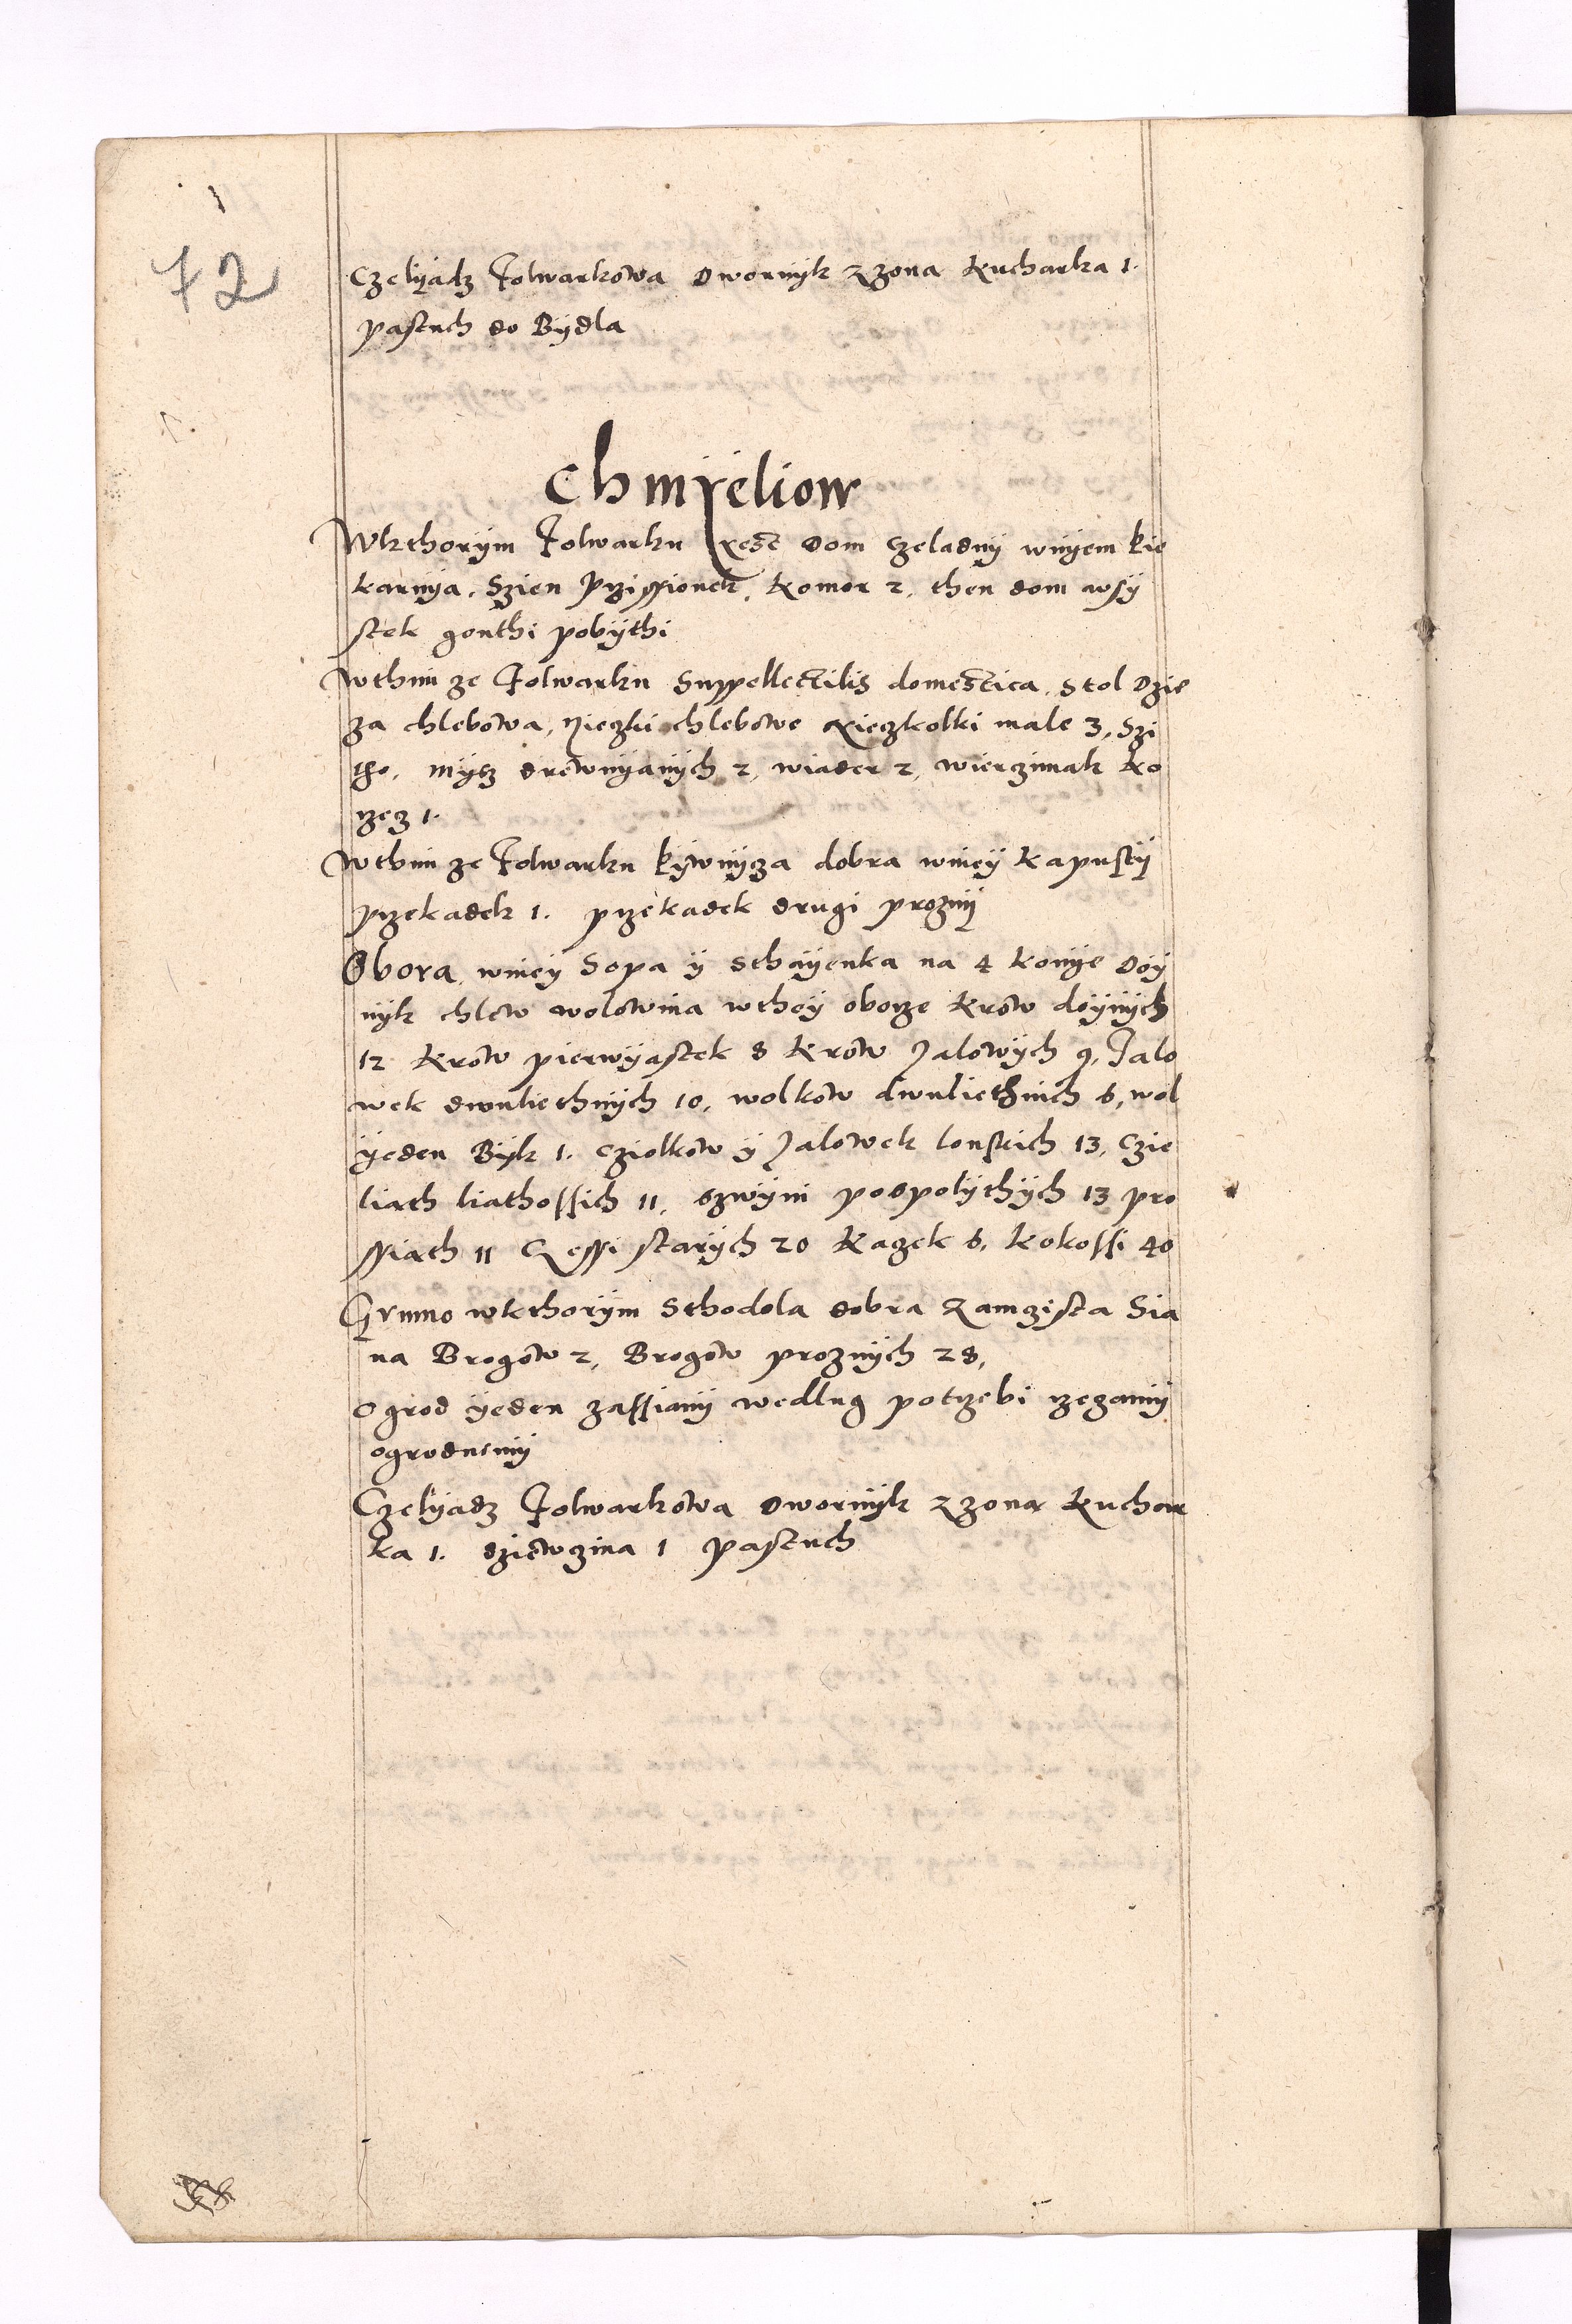 72
Czelyadz Folwarkowa Dwornyk z zona Kucharka 1.
pastuch do Bydla
Chmyeliow
Wkthorym Folwarku yest Dom Czeladny wnyem Pie
karnya, Szien Przissionek, Komor 2, then dom wsy
stek gonthi pobythi
Wthim ze Folwarku Suppellectilis domestica, Stol Dzie
za chlebowa, Nieczki chlebowe Nieczkolki male 3, Szi
tho, mysz drewnyanych 2, wiader 2, wierzimak ko
rzez 1.
Wthim ze Folwarku Pywnycza dobra wniey Kapusty
przekadek 1. przekadek drugi prozny
Obora wniey Sopa y Sthayenka na 4 konye Doy
nyk chlew wolownia wthey oborze Krow doynych
12 Krow pierwyastek 8 Krow Jalowych 9, Jalo
wek dwuliethnych 10, wolkow dwuliethnich 6, wol
yeden Byk 1. Cziolkow y Jalowek lonskich 13, Czie
liath liathossich 11, Szwyni pospolythych 13 pro
ssiath 11 Gessi starych 20 Kazek 6, Kokossi 40
Gumno wkthorym Sthodola dobra Zamczista Sia
na Brogow 2, Brogow proznych 28,
Ogrod yeden zassiany wedlug potrzebi rzezamy
ogrodnemy
Czelyadz Folwarkowa Dwornyk z zona Kuchar
ka 1. dziewczina 1 pastuch